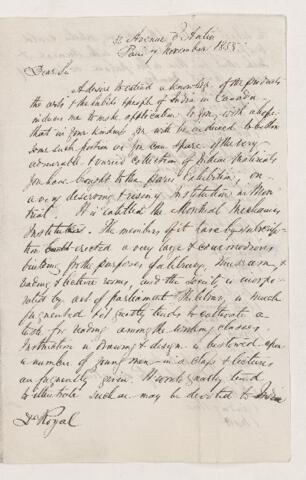 Avenue d'Antin
Paris 7 November 1855
Dear Sir
A desire to extend a knowledge of the products
the arts & the habits & people of India in Canada
induces me to make application to you, with a hope
that in your kindness you will be induced to bestow
some such portion as you can spare of the very
admirable & varied collection of Indian Materials
you have brought to the Paris Exhibition, on
a very deserving & rising Institution in Mon
treal. It is entitled the Montreal Mechanics
Institute. The members of it have by subscrip
tion erected a very large & commodious
building for the purposes of a library, museum, &
reading & lecture rooms, and the Society is incorpo
rated by act of parliament. The library is much
frequented & greatly tends to cultivate a
taste for reading among the working classes.
Instruction in drawing & design is bestowed upon
a number of young men in a class & lectures
are frequently given. It would greatly tend
to illustrate such as may be devoted to India
Dr Royal